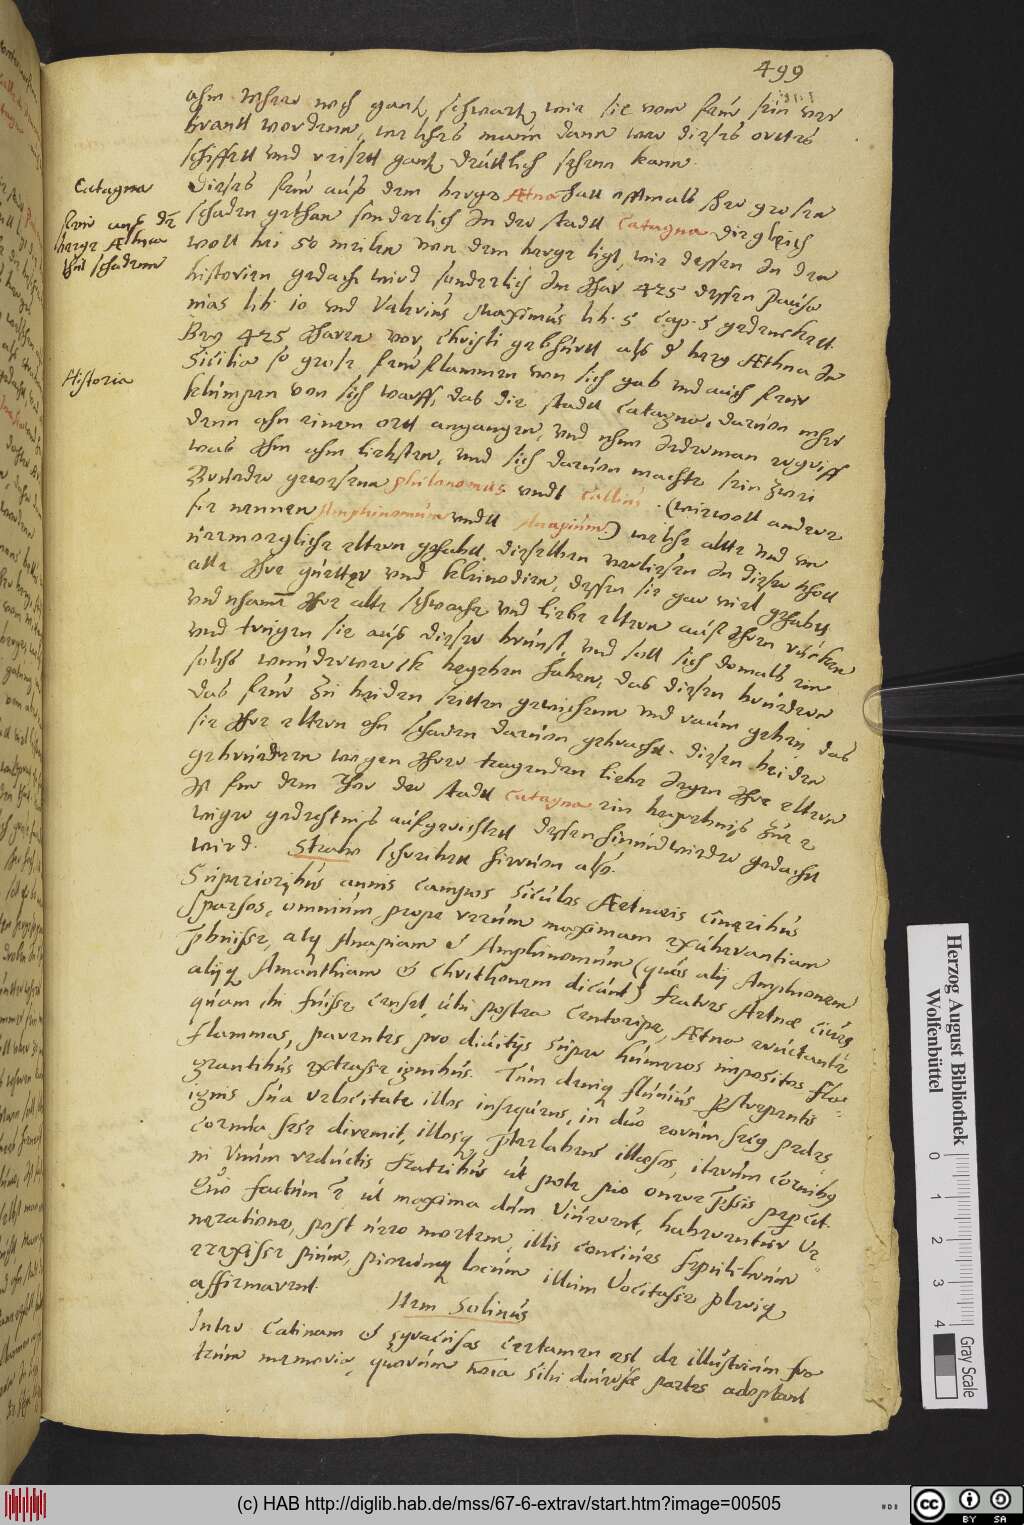 499
ahn ihrer noch gantz schwartz, wie sie vom feur sein ver
brandt worden, welches man dann wer dieses orttes
schiffett und reisett gantz deutlich sehen kann.
Catagna
Dieses feur auß dem berge Ætna hatt offtmals ser grosen
feur auß dē
berge Æthna
thut schaden
schaden gethan sonderlich In der stadtt Catagna die gleich
woll bei 50 meilen von dem berge ligt, wie dessen In den
historien gedacht wird sonderlich Im Ihar 425 dessen Pausa
nias lib: 10 und Valerius Maximus lib. 5 cap. 5 gedencken.
Bey 425 Iharen vor Christi gebhurtt als d berg Æthna In
Historia
Sicilia so grose feur flammen von sich gab und auch feur
klumpen von sich warff, das die stadtt Catagna, darvon
denn ahn einem ortt angangen, und ihederman ergriff
was Ihm ahm liebsten, und sich darvon machte sein zwei
Bruder gewesenn philonomus undt Callius (wiewoll andere
sie nennen Amphinomum undtt Anapium) welche alte und un
vermoegliche eltern gehabt, dieselben verliesen In dieser nhott
alle Ihre guetter und kleinodien, dessen sie gar viel gehabt
und nhamē Ihre alte schwache und liebe eltern auff Ihren rücken
und trugen sie aus dieser brunst, und soll sich domals ein
solchs wunderwerck begeben haben, das diesen brüdern
das feur zu beiden seitten gewichenn und raum geben, das
sie Ihre eltern ohn schaden darvon gebracht. diesen beiden
gebrüdern wegen Ihrer tragenden liebe Iegen Ihre eltern
Ist für dem Thor der stadtt Catagna ein begrebnis zur e
wiger gedechtnis aufgerichtett dessen hinnd wieder gedacht
wird. Strabo schreibett hirvon also.
Superioribus annis campos siculos Ætnaeis cineribus
sparsos, omnium prope rerum maximam exuberantiam
tribuisse, alij Anapiam et Amphinomum (quos alij Amphionem
alijq Amanthiam et Chrithonem dicunt) fratres Aetnæ cives
quam ibi fuisse censet, ubi postea Centoripe, Ætna eructante
flammas, parentes pro divitijs super humeros impositos fla-
grantibus extraxisse ignibus. Tum deniq fluvius perstrepentis
ignis sua velocitate illos insequens, in duo eorum secg pedes
cornua sese diremit, illosq praeterlabens illaesos, iterum cornibus
in unum reductis fratribus ut pote pio onere pressis pepercit.
Quo factum ē ut maxima dum viverent, haberentur ve-
neratione, post vero mortem, illis concives sepulchrum
erexisse pium, piorumq locum illum vocitasse pleriq,
affirmarent.
Item Solinus
Inter Catinam et syracusas certamen est de illustrium fra
trum memoria, quorum noīa sibi diversæ partes adoptant
Herzog August Bibliothek
Wolfenbüttel
0 1 2 3 4
Gray Scale
(c) HAB http://diglib.hab.de/mss/67-6-extrav/start.htm?image=00505
cc BY SA